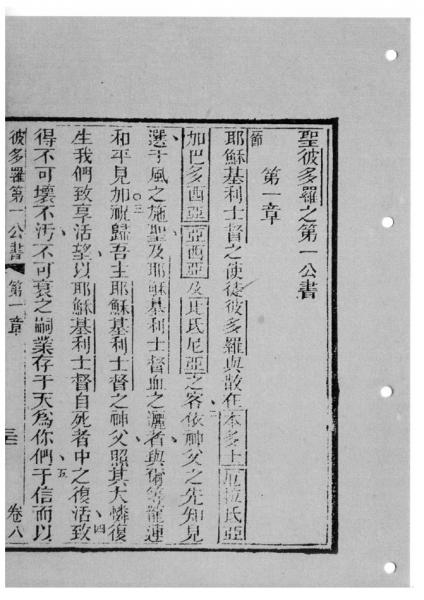 聖彼多羅之第一公書
第一章
節
耶穌基利士督之使徒彼多羅與散在本多士厄拉氏亞
加巴多西亞亞西亞及其氏尼亞之客依神父之先知見
選于風之施聖及耶穌基利士督血之灑者與爾等寵連
和平見加祝歸吾主耶穌基利士督之神父照其大憐復
生我們致享活望以耶穌基利士督自死者中之復活致
得不可壞不汚不可衰之嗣業存于天為你們于信而以
彼多羅第一公書 第一章 卷八